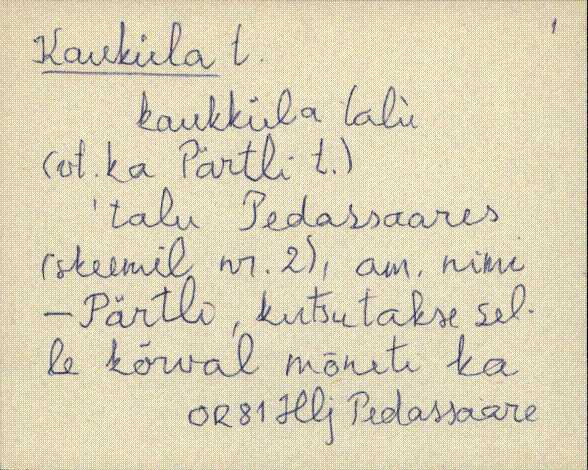 Kauküla t.
kaukküla talù
(vt. ka Pärtli t.)
'talu Pedassaares
(skeemil nr. 2), am. nimi
— Pärtli, kutsutakse sel-
le kõrval mõneti ka
OR 81 Hlj Pedassaare